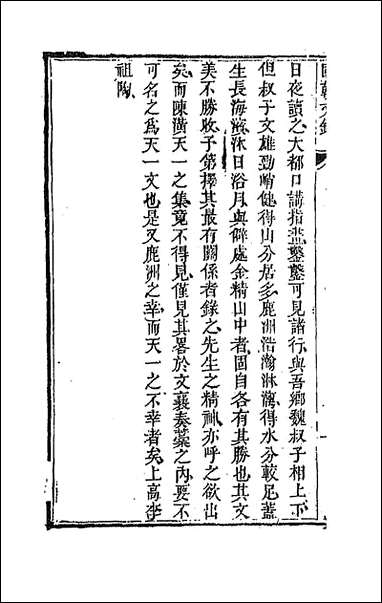 日夜讀之大都口講指畫鑿鑿可見諸行與吾鄉魏叔子相上下
但叔子文雄勁峭健得山分居多鹿洲浩瀚淋漓得水分較足蓋
生長海滋沐日浴月與僻處金精山中者固自各有其勝也其文
美不勝收予第擇其最有關係者錄之先生之精神亦呼之欲出
矣而陳潢天一之集竟不得見僅見其畧於文襄奏藁之內要不
可名之爲天一文也是又鹿洲之幸而天一之不幸者矣上高李
祖陶